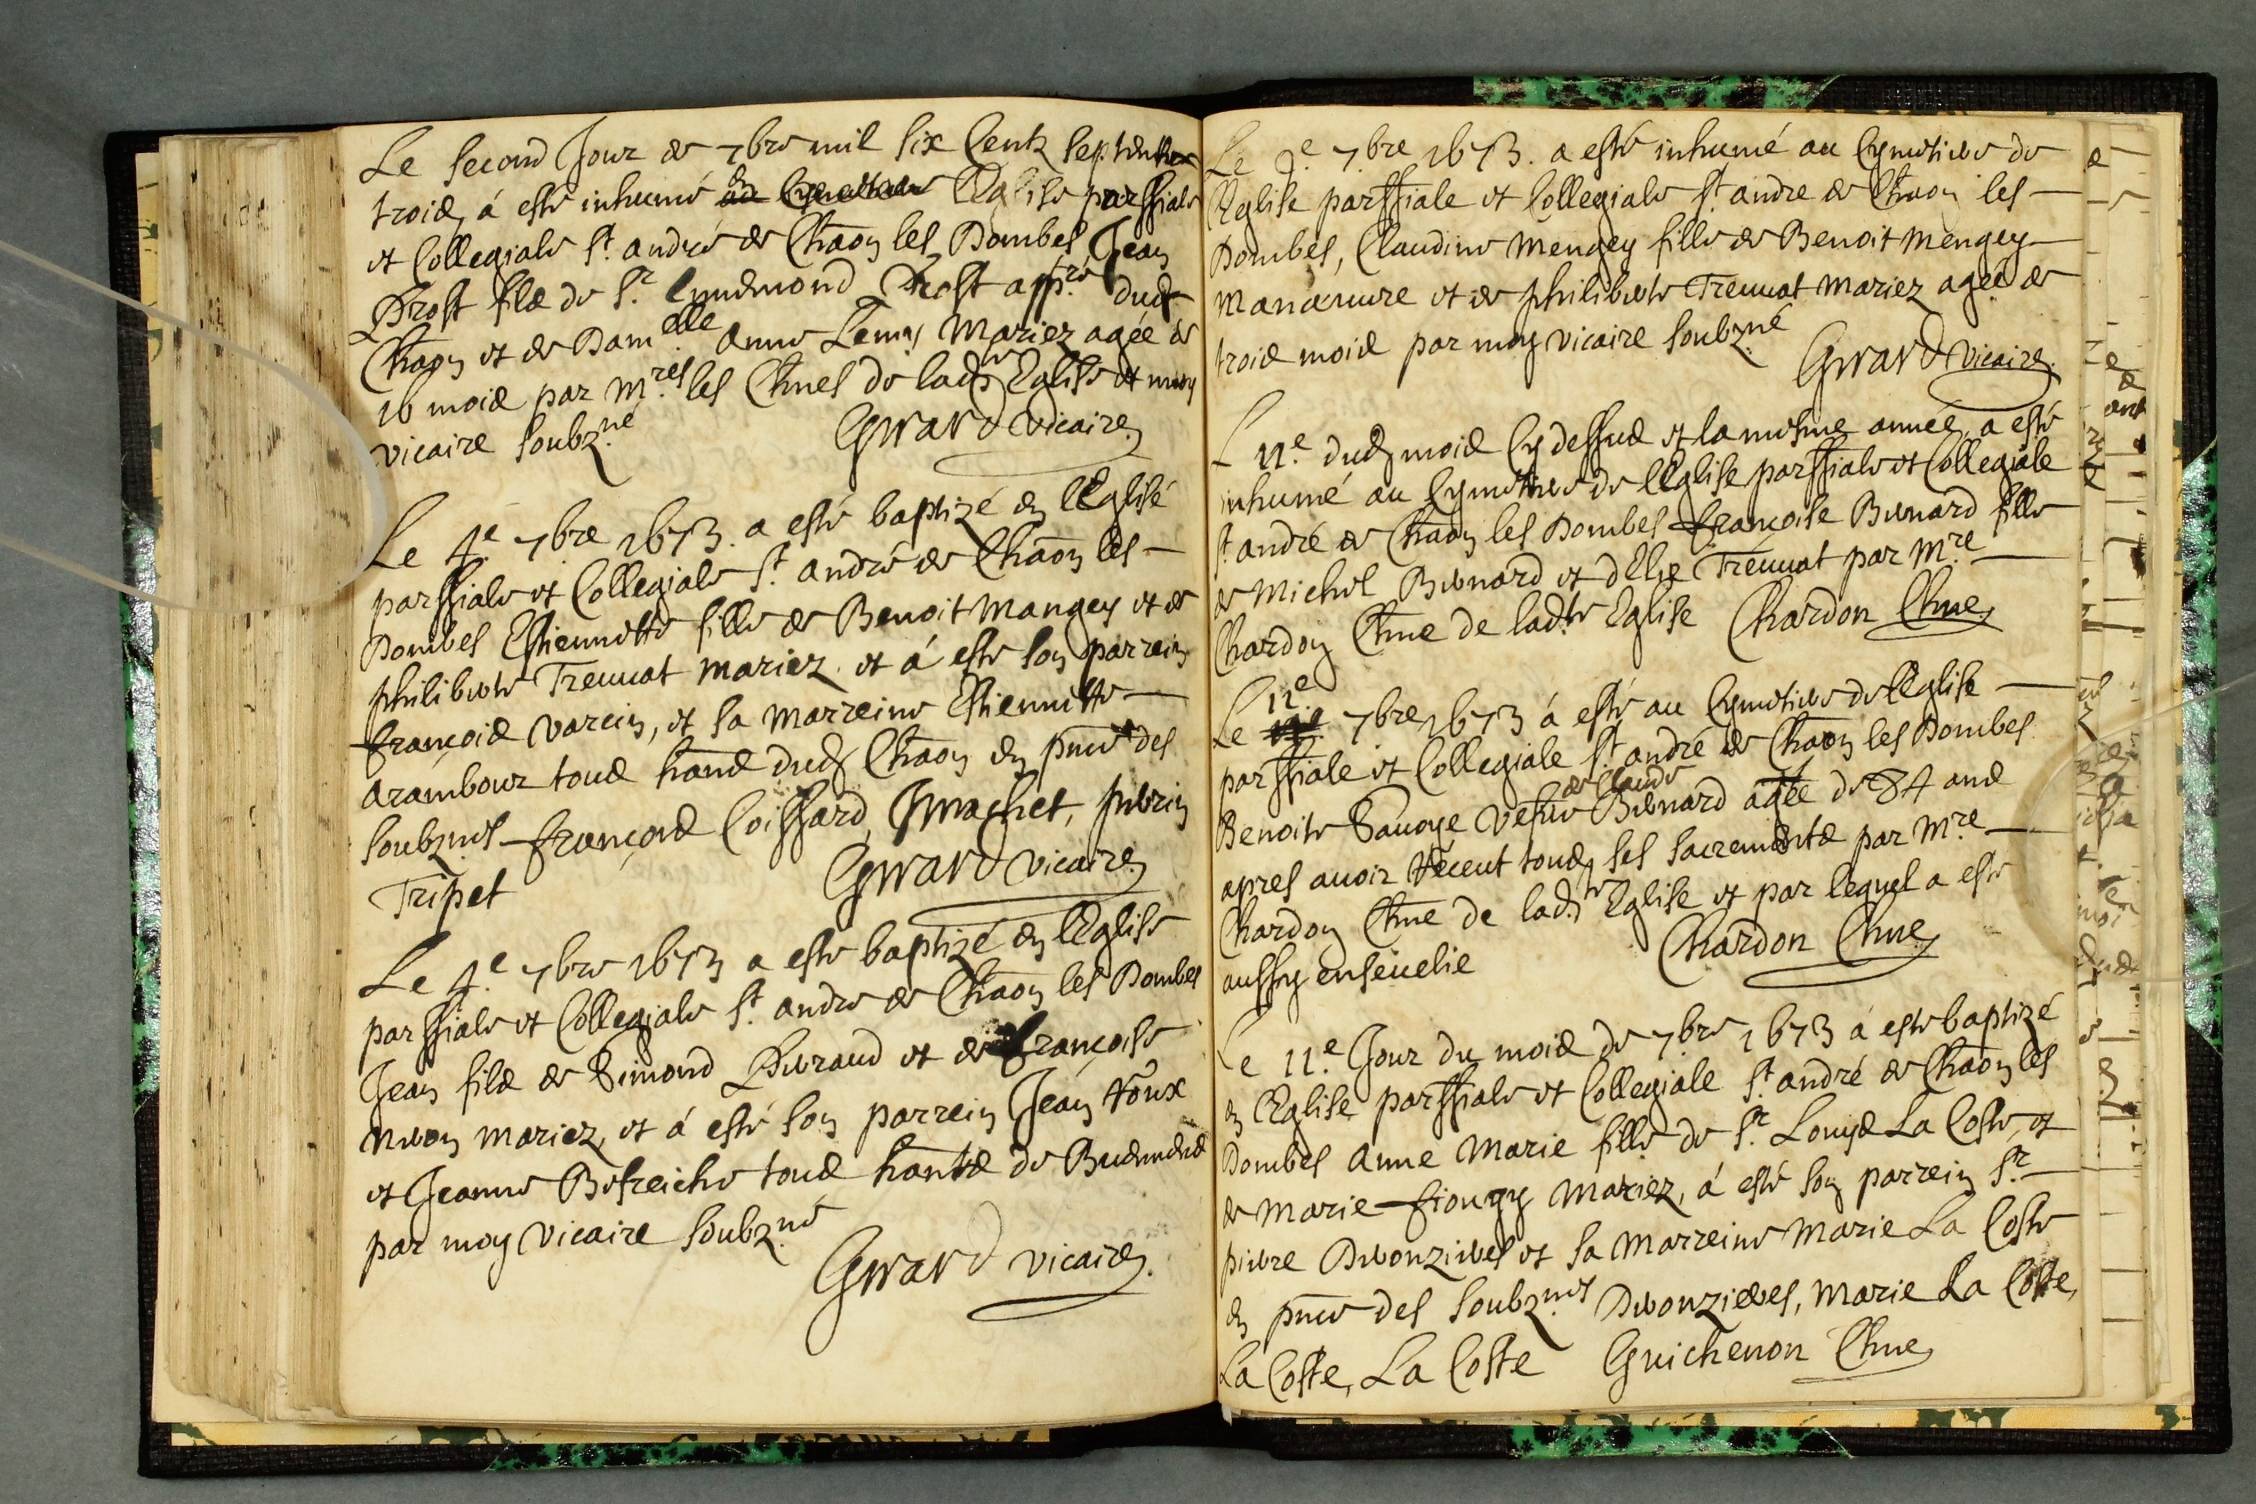 Le second Jour de 7bre mil six Centz septente
troid, á esté inhumé en l'Eglise parssiale
et Collegiale St. andré de Chaōn les Dombes Jean
Prost fild de Sr. Prost appre. dud.
Chaōn et de Damelle Anne Mariez agée de
16 moid par Mres. les Chnes de lad. Eglise et moy
vicaire soubz.né Girard vicaire
Le 4e. 7bre 1673. a esté baptizé en l'Eglisé
parssiale et Collegiale St. andré de Chaōn les
Dombes Estiennette fille de Benoit Mangey et de
philiberte Treuuat mariez. et á esté son parrein
françoid varein, et sa marreine Estiennette
arambour toud hand dud. Chaōn en pnce des
soubz.nes françoid Coissard, Jmachet,
Tripet Girard vicaire
Le 4e. 7bre 1673 a esté baptizé en l'Eglise
parssiale et Collegiale St. andre de Chaōn les Dombes
Jean fild de Simond et de françoise
mariez, et á esté son parrein Jean
et Jeanne toud hantd de
par moy vicaire soubz.né
Girard vicaire.
Le 9e 7bre 1673. a esté inhumé au Cymetiere de
l'Eglise parssiale et Collegiale St. andre de Chaon les
Dombes, Claudine Mengey fille de Benoit Mengey
manœuure et de philiberte Treuuat mariez agéé de
troid moid par moy vicaire soubz.né
Girard vicaire.
L 11e. dud. moid Cy dessud et la mesme année, a esté
inhumé au Cymetiere de l'Eglise parssiale et Collegiale
St. andré de Chaōn les Dombes françoise Bernard fille
de Michel Bernard et d'Elye Tréuuat par Mre
Chardon Chne de lad.te Eglise Chardon Chne
Le 12e 7bre 1673 á esté au Cymetiere de l'Eglise
parssiale et Collegiale St. andré de Chaōn les Dombes
Benoite Sauoye vefue de Claude Bernard agée de 84 and
apres auoir récent toud ses sacrementd par Mre
Chardon Chne de lad.te Eglise et par lequel a esté
aussy enséuelie Chardon Chne
Le 11e. Jour du moid de 7bre 1673 á esté baptizé
en l'Eglise parssiale et Collegiale St. andré de Chaōn les
Dombes Anne Marie fille de Sr. Louyd La Coste, et
de Marie fiougy Mariez, á esté son parrein Sr.
pierre Deronzieres et sa Marreine Marie La Coste
en pnce des soubz.nes Deronzieres, Marie La Coste,
La Coste, La Coste Guichenon Chne